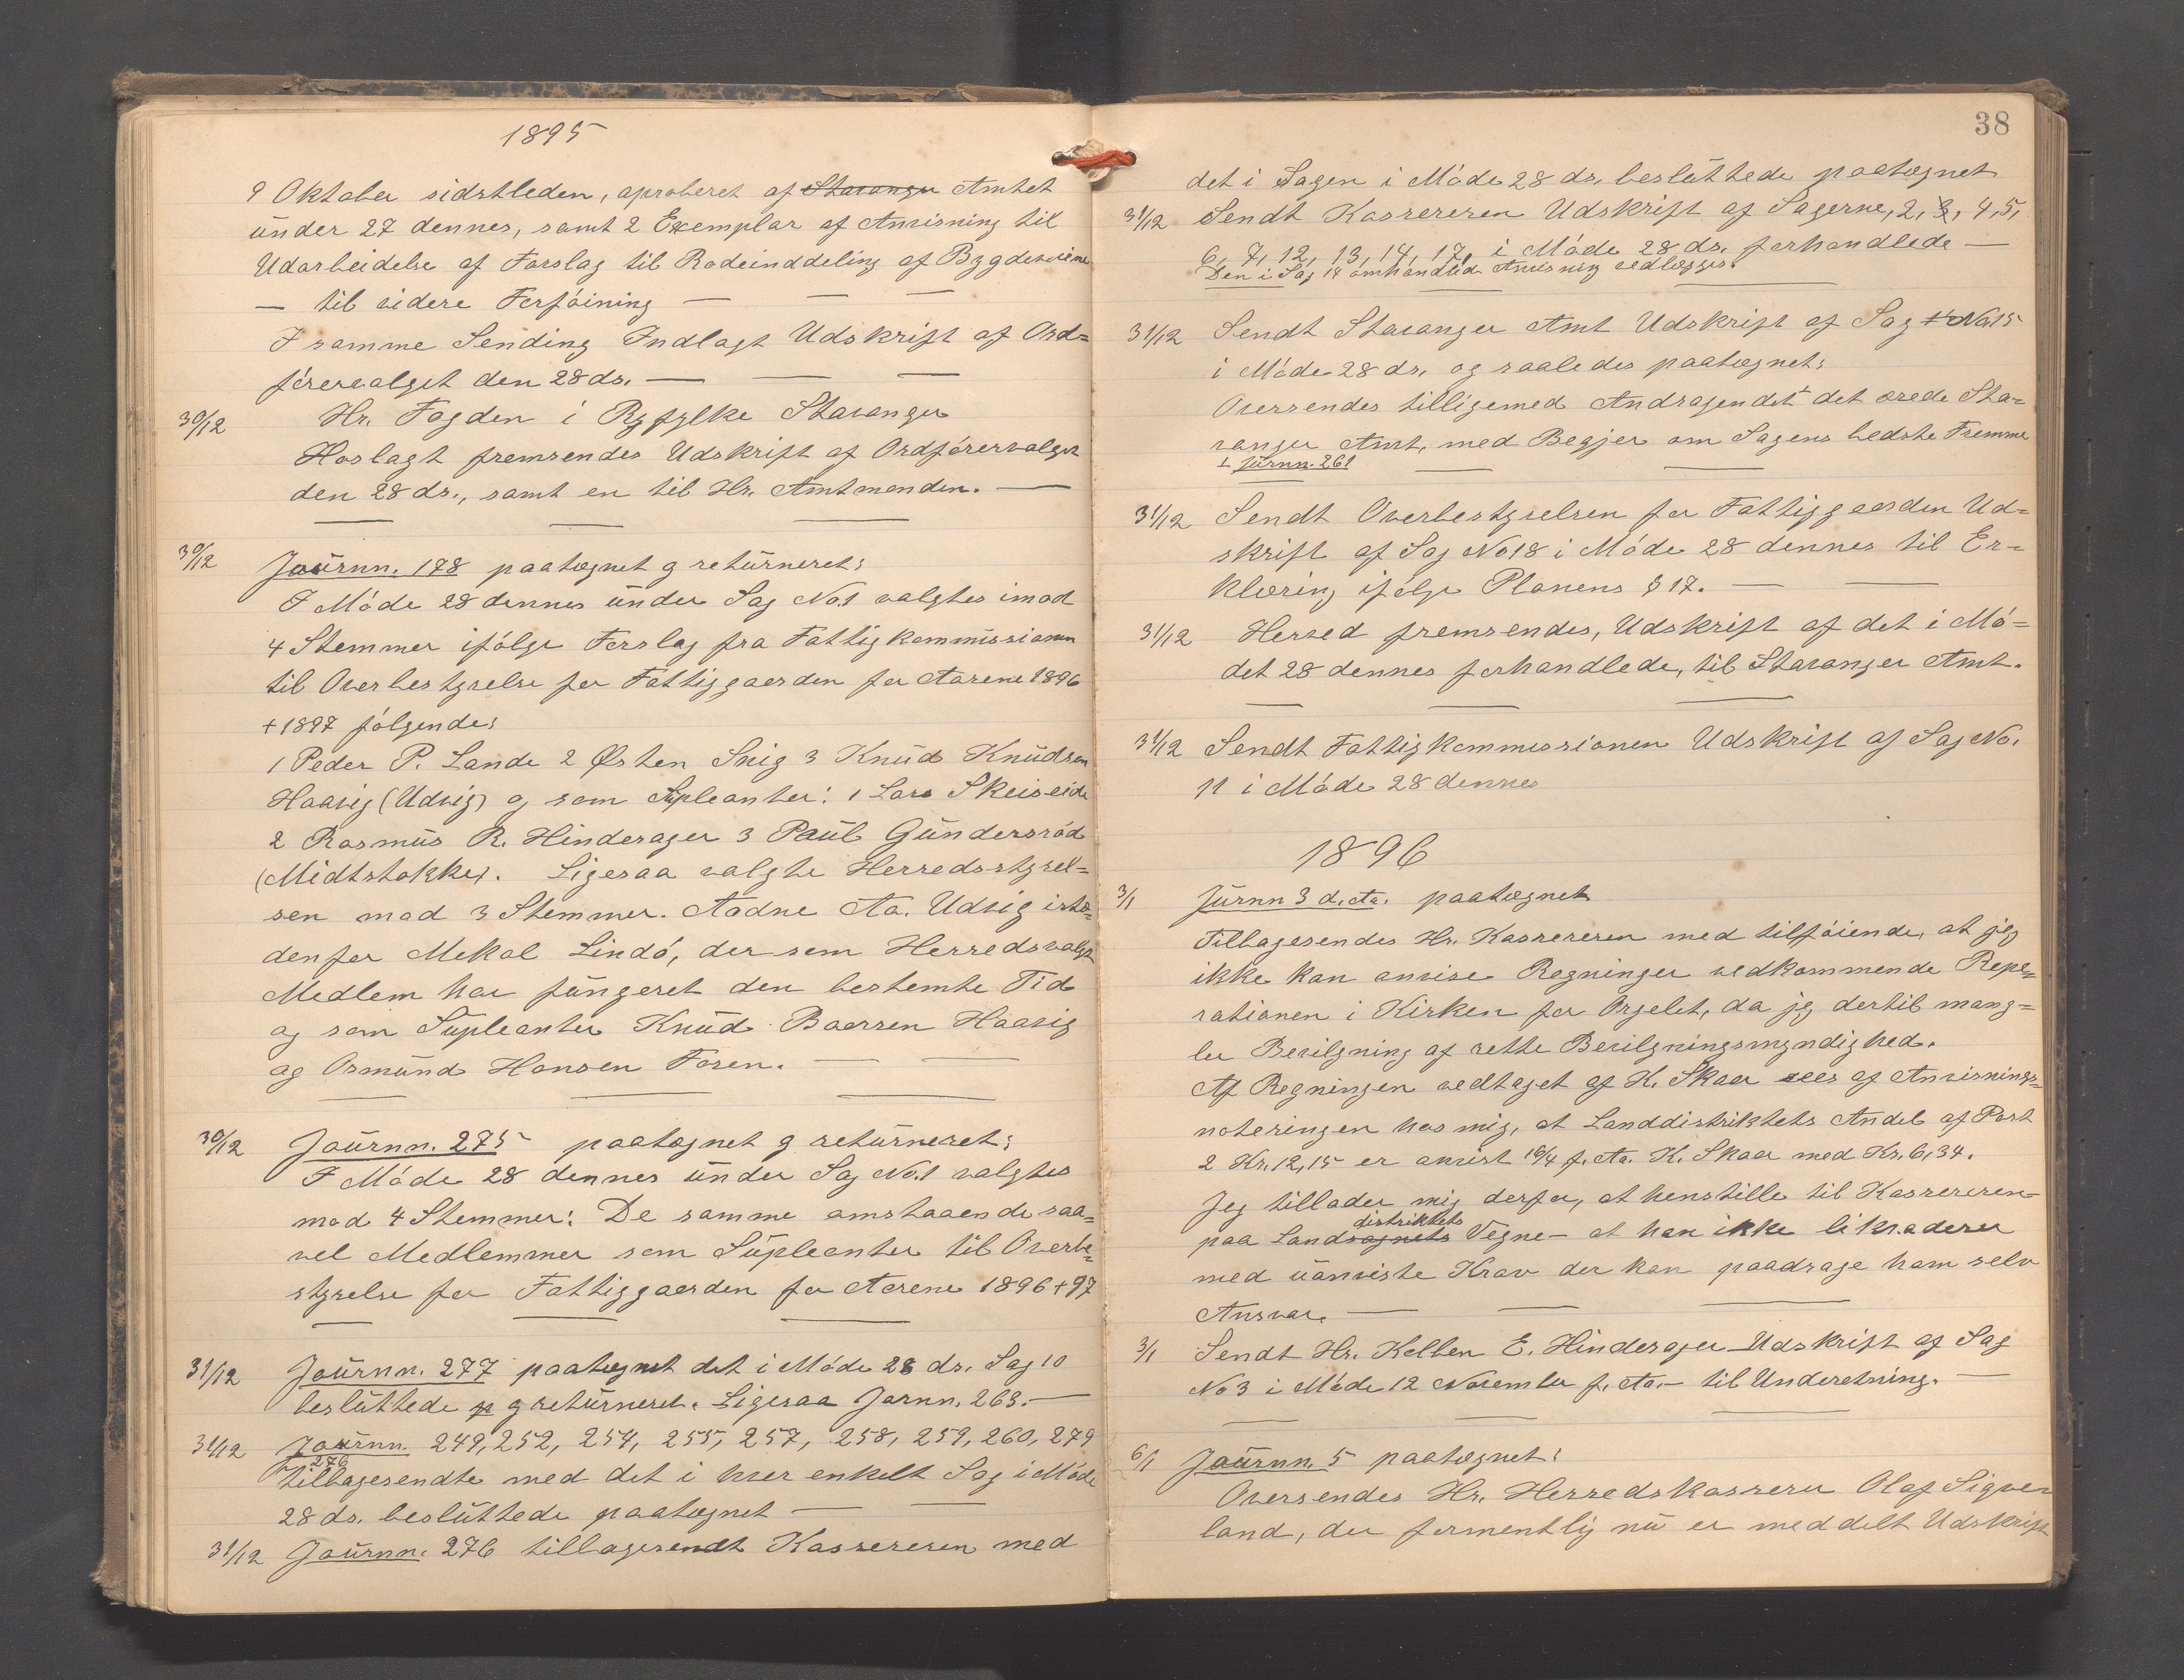 1895
9 Oktober sidstleden, aproberet af Stavanger Amtet
under 27 dennes, samt 2 Exemplar af Anvisning til
Udarbeidelse af Forslag til Rodeinddeling af Bygdeveiene
— til videre Forföining — — —
I samme Sending Indlagt Udskrift af Ord=
förervalget den 28 ds. — — —
30/12 Hr. Fogden i Ryfylke Stavanger
Hoslagt fremsendes Udskrift af Ordförervalget
den 28 ds., samt en til Hr. Amtmanden. —
30/12 Journn. 178 paategnet og returneret:
I Möde 28 dennes under Sag No. 1 valgtes imod
4 Stemmer ifölge Forslag fra Fattigkommissionen
til Overbestyrelse for Fattiggaarden for Aarene 1896
+ 1897 fölgende:
1 Peder P. Lande 2 Østen Snig 3 Knud Knudsen
Haavig (Udvig) og som Supleanter: 1 Lars Skeiseide
2 Rasmus R. Hinderager 3 Paul Gundersröd
(Midtstokke). Ligesaa valgte Herredsstyrel=
sen mod 3 Stemmer. Aadne Aa. Udvig iste=
denfor Mekal Lindö, der som Herredsvalgt
Medlem har fungeret den bestemte Tid
og som Supleanter Knud Baarsen Haavig
og Osmund Hansen Fosen. — —
30/12 Journn. 275 paategnet og returneret:
I Möde 28 dennes under Sag No. 1 valgtes
mod 4 Stemmer: De samme omstaaende saa=
vel Medlemmer som Supleanter til Overbe=
styrelse for Fattiggaarden for Aarene 1896+97
31/12 Journn. 277 paategnet det i Möde 28 ds. Sag 10
besluttede og returneret. Ligesaa Jornn. 263. —
31/12 Journn. 249, 252, 254, 255, 257, 258, 259, 260, 279
276
tilbagesendte med det i hver enkelt Sag i Möde
28 ds. besluttede paategnet — —
31/12 Journn. 276 tilbagesendt Kassereren med
38
det i Sagen i Möde 28 ds. besluttede paategnet
31/12 Sendt Kassereren Udskrift af Sagerne, 2, 3, 4, 5,
6, 7, 12, 13, 14, 17, i Möde 28 ds. forhandlede —
Den i Sag 14 omhandled Anvisning vedlægges.
31/12 Sendt Stavanger Amt Udskrift af Sag No. 15
i Möde 28 ds. og saaledes paategnet:
Oversendes tilligemed Andragendet ⊥ det ærede Sta=
vanger Amt, med Begjær om Sagens bedste Fremme
⊥ Journn. 261
31/12 Sendt Overbestyrelsen for Fattiggaarden Ud=
skrift af Sag No 18 i Möde 28 dennes til Er=
klæring ifölge Planens § 17. — —
31/12 Herved fremsendes, Udskrift af det i Mö=
det 28 dennes forhandlede, til Stavanger Amt.
31/12 Sendt Fattigkommissionen Udskrift af Sag No.
11 i Möde 28 dennes
1896
3/1 Jurnn 3 d. Aa. paategnet
Tilbagesendes Hr. Kassereren med tilföiende, at jeg
ikke kan anvise Regninger vedkommende Repe=
rationen i Kirken for Orgelet, da jeg dertil mang=
ler Bevilgning af rette Bevilgningsmyndighed.
Af Regningen vedtaget af H. Skaar sees af Anvisnings=
noteringen hos mig, at Landdistriktets Andel af Post
2 Kr. 12,15 er anvist 16/4 f. Aa. K. Skaar med Kr. 6,34.
Jeg tillader mig derfor, at henstille til Kassereren
distriktets
paa Landsognets Vegne — at han ikke likvaderer
med uanviste Krav der kan paadrage ham selv
Ansvar. — — —
3/1 Sendt Hr. Kelben E. Hinderager Udskrift af Sag
No 3 i Möde 12 November f. Aa. — til Underetning. —
6/1 Journn. 5 paategnet:
Oversendes Hr. Herredskasserer Olaf Sigve=
land, der formentlig nu er meddelt Udskrift